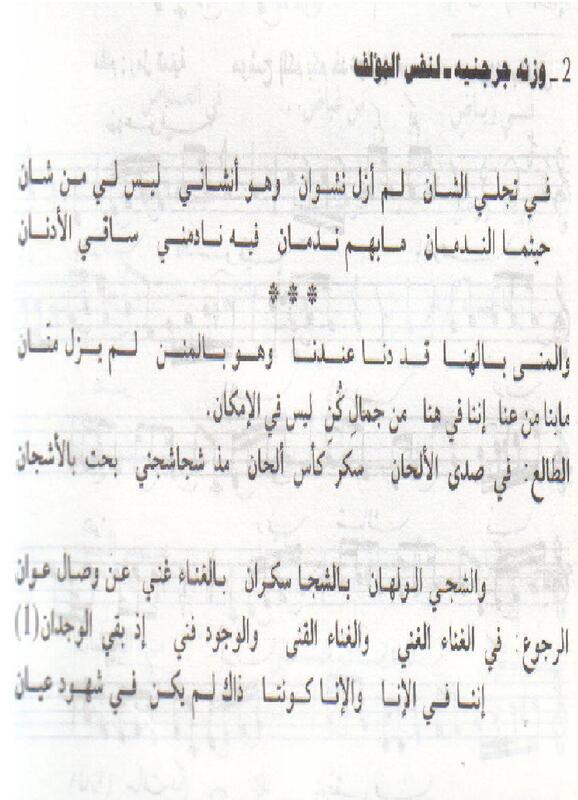 2 ـ وزنه جرجنيه ـ لنفس المؤلف
في تجلي الشان لم أزل نشوان وهو أنشاني ليس لي من شان
حيثما الندمان مابهم ندمان فيه نادمني ساقي الأدنان
***
والمنى بالهنا قد دنا عندنا وهو بالمنن لم يزل منّان
مابنا من عنا إننا في هنا من جمال كُنِ ليس في الإمكان.
الطالع: في صدى الألحان سكر كأس ألحان مذ شجاشجني بحت بالأشجان
والشجي الولهان بالشجا سكران بالغناء غني عن وصال عوان
الرجوع: في الغناء الغني والغناء القنى والوجود فني إذ بقي الوجدان(1)
إننا في الإنا والإنا كوننا ذاك لم يكن في شهود عيان